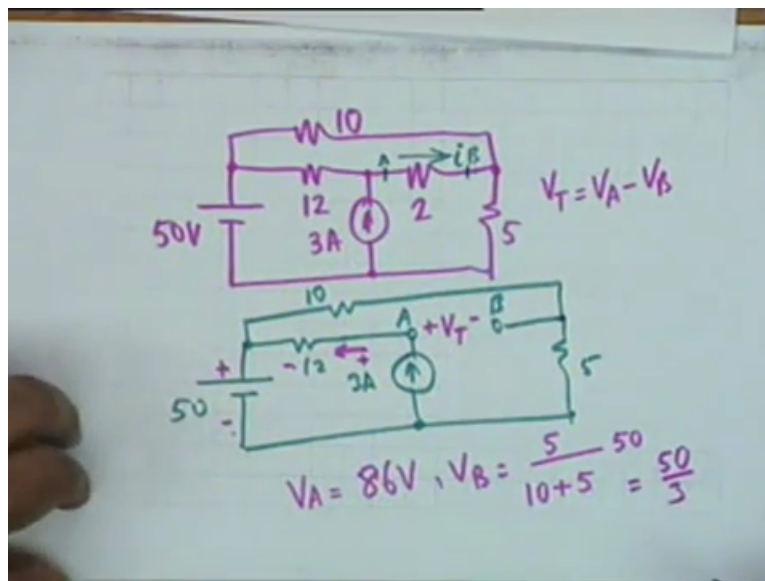 10
A → i B
12
2
50V
3A
5
V_T = V_A - V_B
10
A
+ V_T -
B
+
- 12
+
3A
5
50
-
V_A = 86V, V_B = 5/(10+5) 50 = 50/3